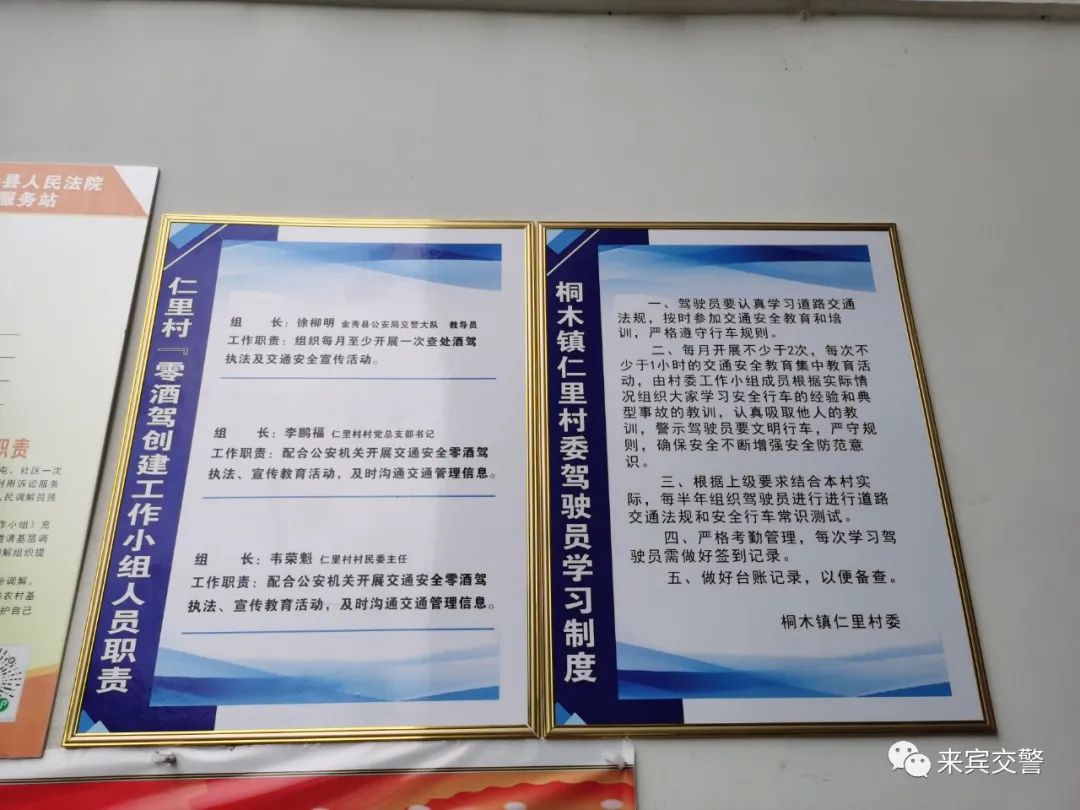 县人民法院
服务站
职责
屯、社区一次
利用诉讼服务
人民调解员预
作小组）充
邀请基层调
解组织提
纷调解。
的农村基
护自己
仁里村『零酒驾创建工作小组人员职责
组 长：徐柳明 金秀县公安局交警大队 教导员
工作职责：组织每月至少开展一次查处酒驾
执法及交通安全宣传活动。
组 长：李鹏福 仁里村村党总支部书记
工作职责：配合公安机关开展交通安全零酒驾
执法、宣传教育活动，及时沟通交通管理信息。
组 长：韦荣魁 仁里村村民委主任
工作职责：配合公安机关开展交通安全零酒驾
执法、宣传教育活动，及时沟通交通管理信息。
桐木镇仁里村委驾驶员学习制度
一、驾驶员要认真学习道路交通
法规，按时参加交通安全教育和培
训，严格遵守行车规则。
二、每月开展不少于2次，每次不
少于1小时的交通安全教育集中教育活
动，由村委工作小组成员根据实际情
况组织大家学习安全行车的经验和典
型事故的教训，认真吸取他人的教
训，警示驾驶员要文明行车，严守规
则，确保安全不断增强安全防范意
识。
三、根据上级要求结合本村实
际，每半年组织驾驶员进行进行道路
交通法规和安全行车常识测试。
四、严格考勤管理，每次学习驾
驶员需做好签到记录。
五、做好台账记录，以便备查。
桐木镇仁里村委
来宾交警